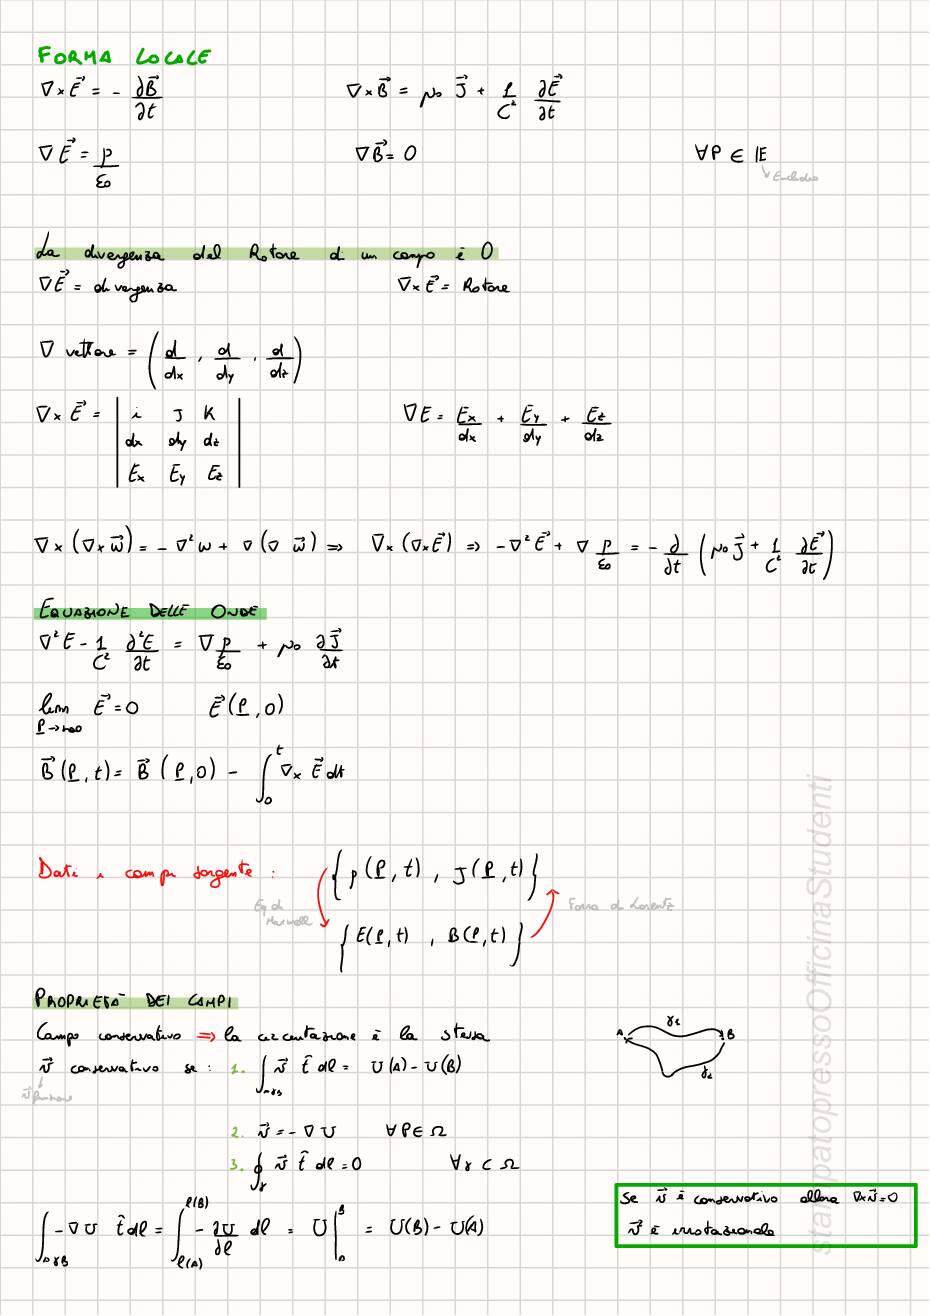 FORMA LOCALE
∇×E⃗ = - ∂B⃗/∂t    ∇×B⃗ = μ₀ J⃗ + 1/C² ∂E⃗/∂t
∇E⃗ = ρ/ε₀    ∇B⃗ = 0    ∀P ∈ 𝔼
Euclideo
La divergenza del Rotore di un campo è 0
∇E⃗ = divergenza    ∇×E⃗ = Rotore
∇ vettore = (d/dx , d/dy , d/dz)
∇×E⃗ = | i J K |    ∇E = Ex/dx + Ey/dy + Ez/dz
| dx dy dz |
| Ex Ey Ez |
∇×(∇×w⃗) = - ∇²w + ∇(∇ w⃗) ⇒ ∇×(∇×E⃗) ⇒ -∇²E⃗ + ∇ ρ/ε₀ = - ∂/∂t (μ₀ J⃗ + 1/C² ∂E⃗/∂t)
EQUAZIONE DELLE ONDE
∇²E - 1/C² ∂²E/∂t = ∇ρ/ε₀ + μ₀ ∂J⃗/∂t
lim P→+∞ E⃗ = 0    E⃗(P,0)
B⃗(P,t) = B⃗(P,0) - ∫₀ᵗ ∇× E⃗ dt
Dati i campi sorgente : {ρ(P,t) , J(P,t)}
Eq di Maxwell    Forza di Lorentz
{E(P,t) , B(P,t)}
PROPRIETÀ DEI CAMPI
Campo conservativo ⇒ la circuitazione è la stessa
A γ₁ B
v⃗ conservativo se : 1. ∫AγB v⃗ t̂ dl = U(A) - U(B)
γ₂
v⃗ funzione
2. v⃗ = - ∇U    ∀P ∈ Ω
3. ∮γ v⃗ t̂ dl = 0    ∀γ ⊂ Ω
Se v⃗ è conservativo allora ∇×v⃗ = 0
v⃗ è irrotazionale
∫AγB -∇U t̂ dl = ∫l(A)l(B) - ∂U/∂l dl = U|ᴮₐ = U(B) - U(A)
stampatopressoOfficinaStudenti